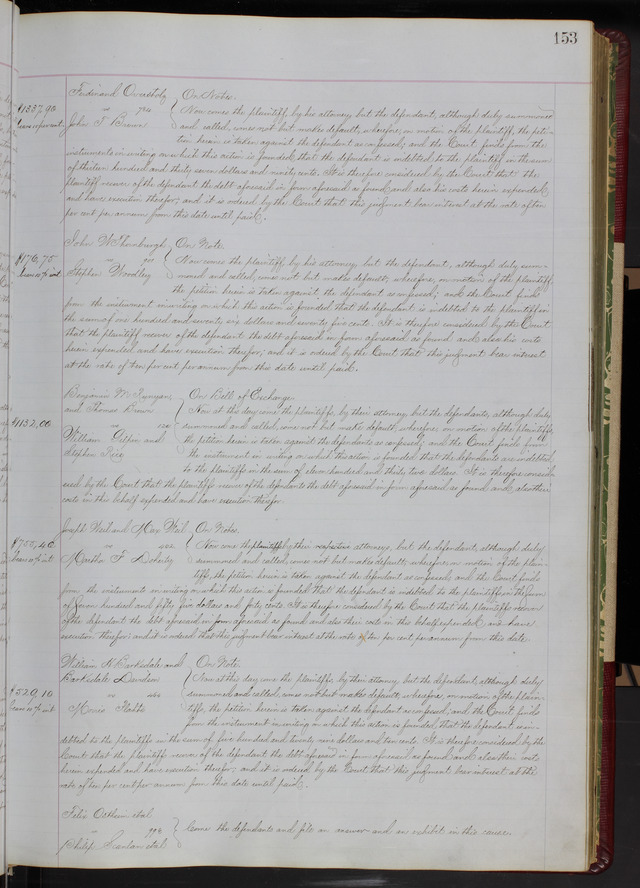 153
Ferdinand Overstolz } On Notes.
$1337.90
vs Now comes the plaintiff by his attorney but the defendant, although duly summoned
bears 10 per cent
John T. and called, comes not but makes default; wherefore, on motion of the plaintiff, the peti-
tion herein is taken against the defendant as confessed; and the Court finds from the
instruments in writing on which this action is founded, that the defendant is indebted to the plaintiff in the sum
of thirteen hundred and thirty seven dollars and ninety cents. It is therefore considered by the Court that the
plaintiff recover of the defendant the debt aforesaid in form aforesaid as found, and also his costs herein expended
and have execution therefor; and it is ordered by the Court that this judgment bear interest at the rate of ten
per cent per annum from this date until paid.
John W. Thornburgh } On Note.
$176.75
vs Now comes the plaintiff by his attorney but the defendant, although duly sum-
bears 10 % int
Stephen Woodley moned and called, comes not but makes default; wherefore, on motion of the plaintiff,
the petition herein is taken against the defendant as confessed; and the Court finds
from the instrument in writing on which this action is founded that the defendant is indebted to the plaintiff in
the sum of one hundred and seventy six dollars and seventy five cents. It is therefore considered by the Court
that the plaintiff recover of the defendant the debt aforesaid in form aforesaid as found and also his costs
herein expended and have execution therefor; and it is ordered by the Court that this judgment bear interest
at the rate of ten per cent per annum from this date until paid.
Benjamin M. Runyan } On Bill of Exchange
and Thomas Now at this day come the plaintiffs by their attorney but the defendants, although duly
$1132.00
vs summoned and called, come not but make default; wherefore, on motion of the plaintiffs
William Gilpin and the petition herein is taken against the defendants as confessed; and the Court finds from
Stephen Rice the instrument in writing on which this action is founded that the defendants are indebted
to the plaintiffs in the sum of eleven hundred and thirty two dollars. It is therefore consid-
ered by the Court that the plaintiffs recover of the defendants the debt aforesaid in form aforesaid as found and also their
costs in this behalf expended and have execution therefor.
Joseph Weil and Max Weil } On Notes.
$755.40
vs Now come the plaintiffs by their attorneys, but the defendant, although duly
bears 10 % int
Martha F. Doherty summoned and called, comes not but makes default; wherefore, on motion of the plain-
tiffs, the petition herein is taken against the defendant as confessed; and the Court finds
from the instruments in writing on which this action is founded that the defendant is indebted to the plaintiffs in the sum
of seven hundred and fifty five dollars and forty cents. It is therefore considered by the Court that the plaintiffs recover
of the defendant the debt aforesaid in form aforesaid as found and also their costs in this behalf expended and have
execution therefor; and it is ordered that this judgment bear interest at the rate of ten per cent per annum from this date.
William H. Barksdale and } On Note.
Barksdale Now at this day come the plaintiffs by their attorney but the defendant, although duly
$529.10
vs summoned and called, comes not but makes default; wherefore, on motion of the plain-
bears 10 % int
tiffs, the petition herein is taken against the defendant as confessed; and the Court finds
from the instrument in writing on which this action is founded, that the defendant is in-
debted to the plaintiffs in the sum of five hundred and twenty nine dollars and ten cents. It is therefore considered by the
Court that the plaintiffs recover of the defendant the debt aforesaid in form aforesaid as found and also their costs
herein expended and have execution therefor; and it is ordered by the Court, that this judgment bear interest at the
rate of ten per cent per annum from this date until paid.
Felix et al
vs } Come the defendants and file an answer and an exhibit in this cause.
Philip Scanlan et al